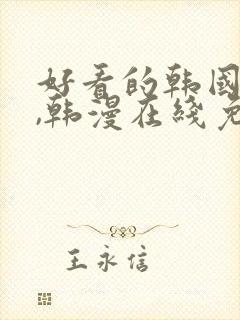 好看的韩国
,韩漫在线免
王永信